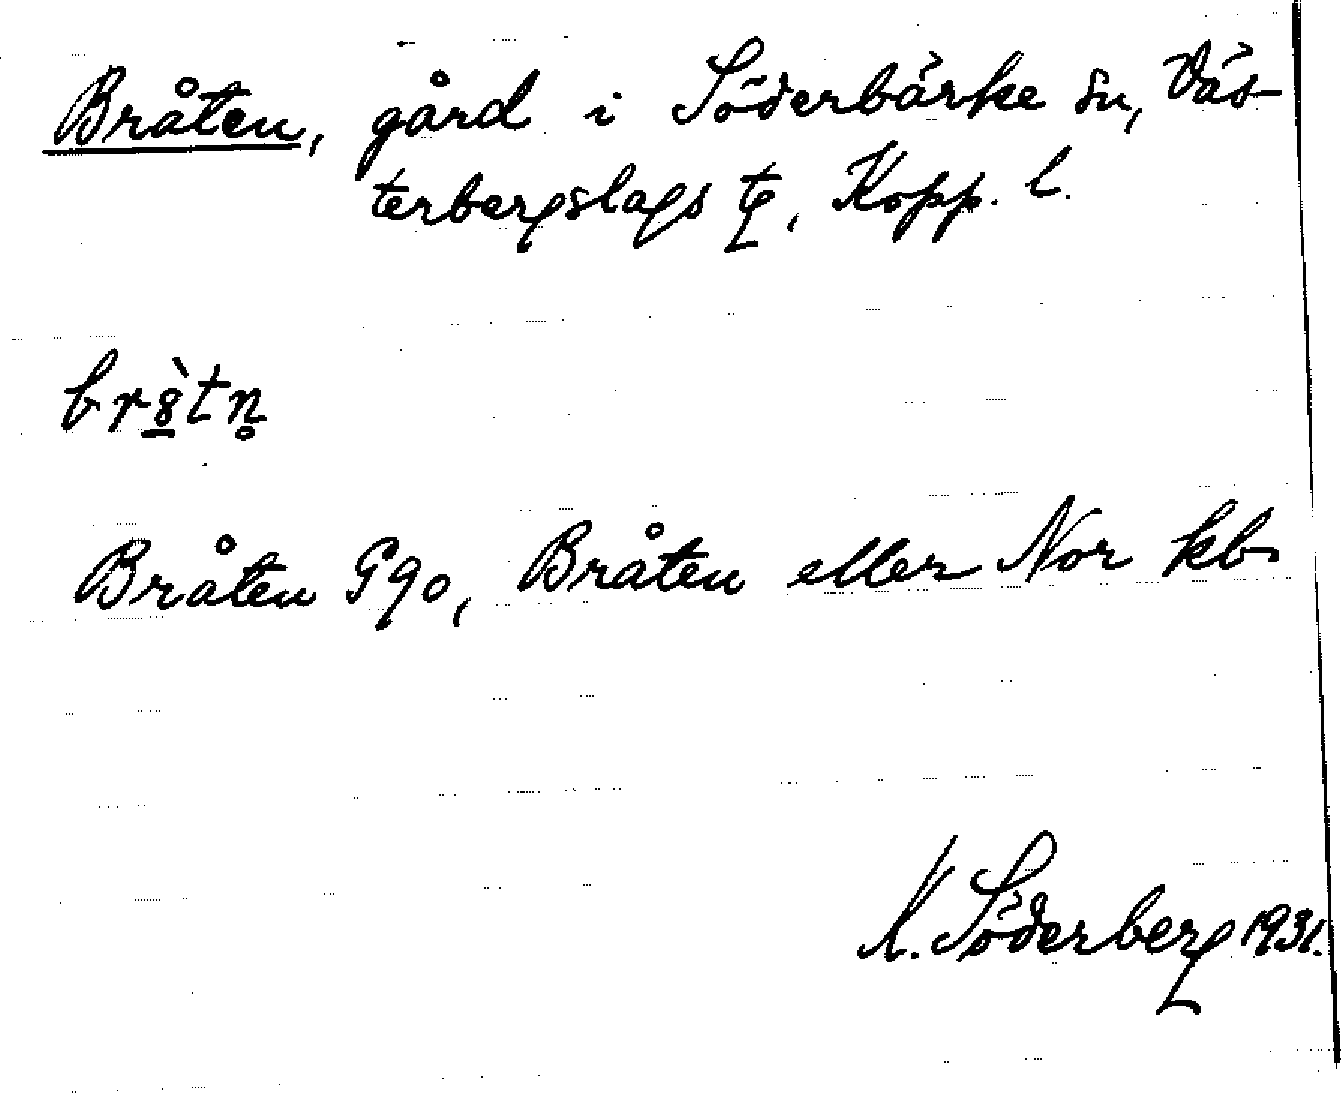 Bråten, gård i Söderbärke sn, Väs-
terbergslags tg, Kopp. l.
br8̲̀tn̥
Bråten G90, Bråten eller Nor kb
K. Söderberg 1931.